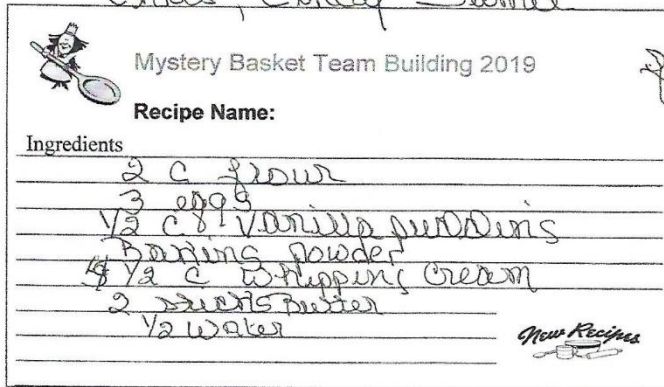 Mystery Basket Team Building 2019
Recipe Name:
Ingredients
2 c flour
3 eggs
1/2 c vanilla pudding
Baking powder
1/2 c whipping cream
2 sticks Butter
1/2 water
New Recipes